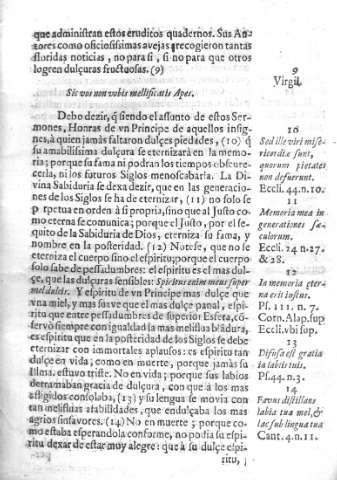 que administran estos eruditos quadernos. Sus Au-
tores como oficiosissimas avejas recogieron tantas
floridas noticias, no para si, si no para que otros
logren dulçuras fructuosas. (9)
Sis vos non vobis mellificatis Apes.
Debo dezir, q̃ siendo el assunto de estos Ser-
mones, Honras de vn Principe de aquellos insig-
nes, à quien jamàs faltaron dulçes piedades, (10) q̃
su amabilissima dulçura se eternizarà en la memo-
ria; porque su fama ni podràn los tiempos obscure-
cerla, ni los futuros Siglos menoscabarla. La Di-
vina Sabiduria se dexa dezir, que en las generacio-
nes de los Siglos se ha de eternizar, (11) no solo se
perpetua en orden à si propria, sino que al Justo co-
mo eterna se comunica; porque el Justo, por el se-
quito de la Sabiduria de Dios, eterniza su fama, y
nombre en la posteridad. (12) Notese, que no se
eterniza el cuerpo sino el espiritu; porque el cuerpo
solo sabe de pessadumbres: el espiritu es el mas dul-
çe, que las dulçuras sensibles: Spiritus enim meus super
mel dulcis. Y espiritu de vn Principe mas dulçe que
vna miel, y mas suave que el mas dulçe panal, espi-
ritu que entre pessadumbres de superior Esfera, cõ-
servò siempre con igualdad la mas meliflua blãdura,
es espiritu que en la posteridad de los Siglos se debe
eternizar con immortales aplausos: es espiritu tan
dulçe en vida; como en muerte, porque jamàs su
Alma, estuvo triste. No en vida; porque sus labios
derramaban gracia de dulçura, con que à los mas
afligidos consolaba, (13) y su lengua se movia con
tan melifluas afabilidades, que endulçaba los mas
agrios sinsavores. (14) No en muerte; porque co-
mo estaba esperandola conforme, no podia su espi-
ritu dexar de estar muy alegre: que à su dulçe espi-
ritu,
9
Virgil.
10
Sed illi viri mise-
ricordiæ sunt,
quorum pietates
non defuerunt.
Eccli. 44. n. 10.
11
Memoria mea in
generationes sæ-
culorum.
Eccli. 24. n. 27.
& 28.
12
In memoria æter-
na erit Iustus.
Ps. 111. n. 7.
Corn. Alap. sup
Eccli. vbi sup.
13
Difusa est gratia
in labiis tuis.
Ps. 44. n. 3.
14
Favus distillans
labia tua mel, &
lac sub lingua tua
Cant. 4. n. 11.